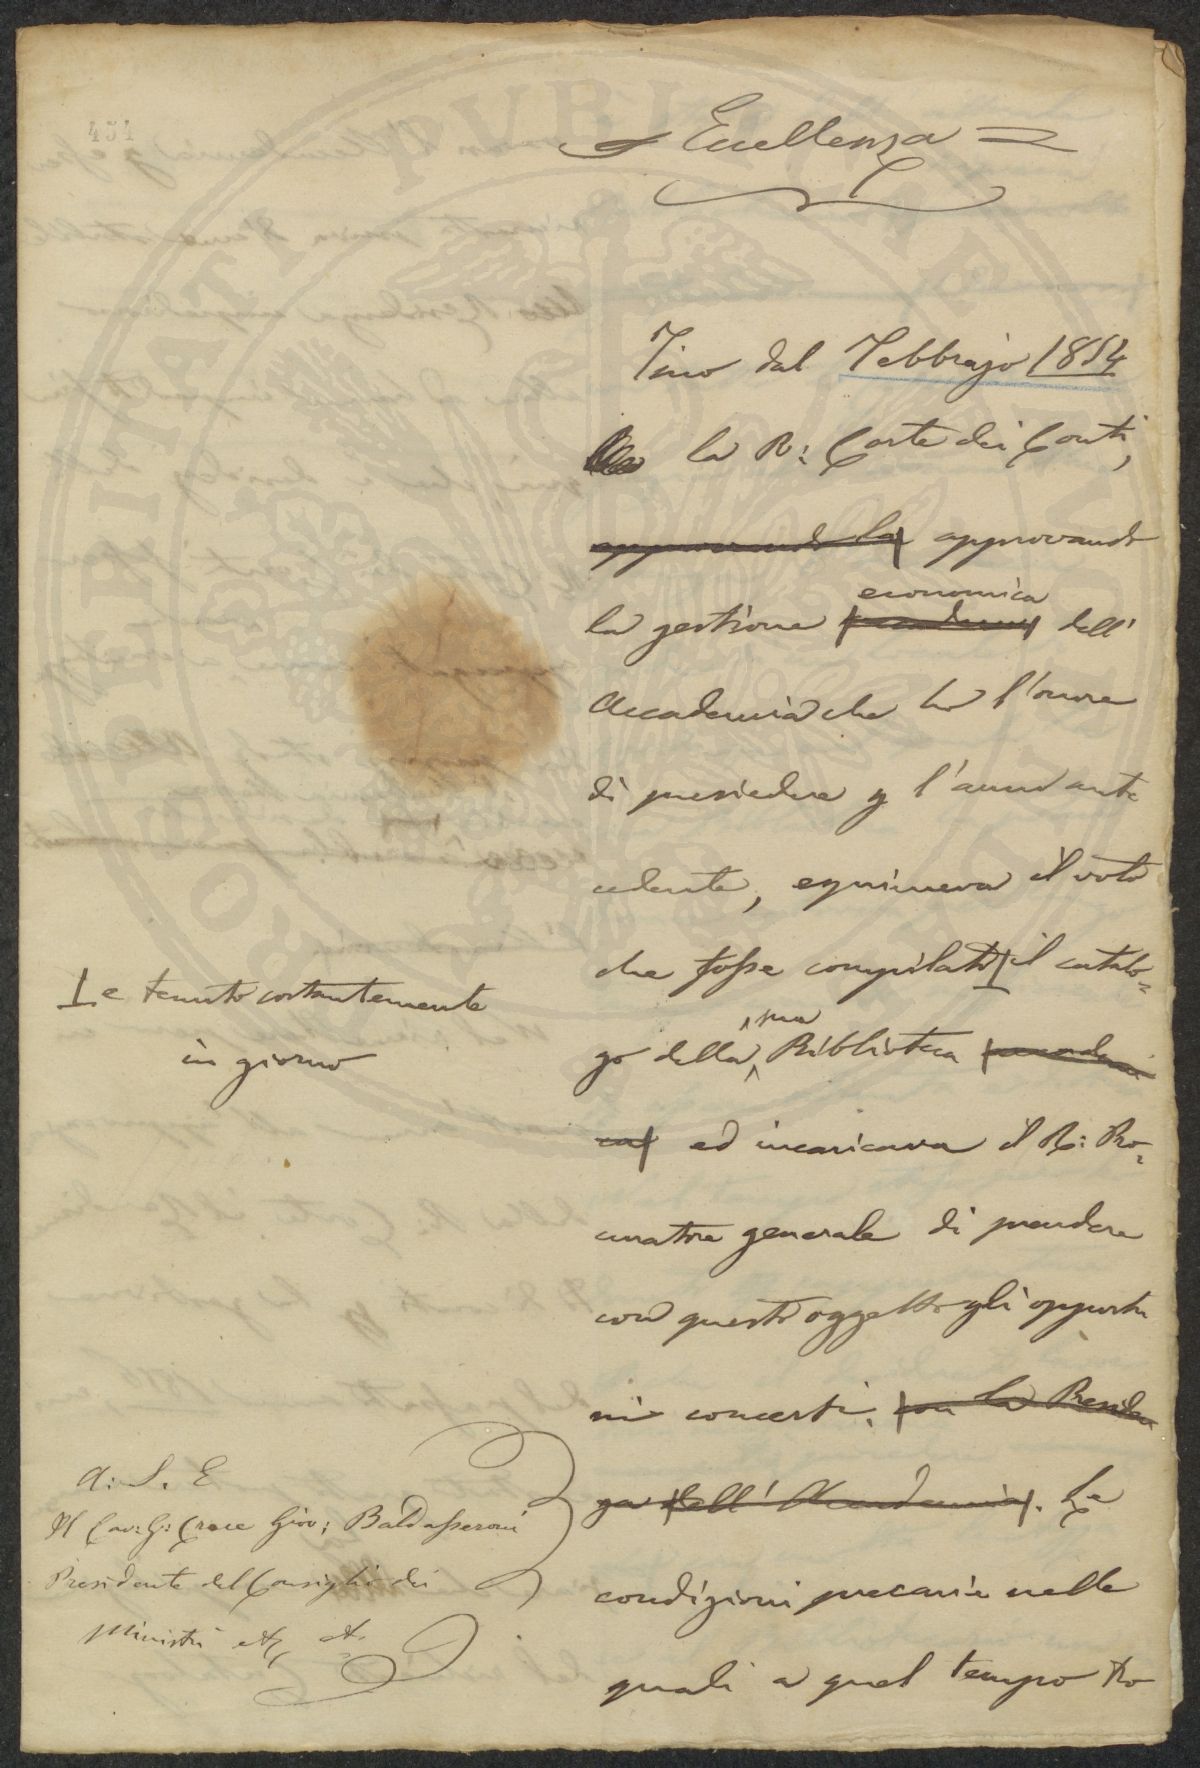 454
Eccellenza
Fino dal Febbrajo 1854
la R: Corte dei Conti,
approvando la approvando
economica
la gestione dell'
Accademia che ho l'onore
di presiedere p l'anno ante
cedente, esprimeva il voto
che fosse compilato il catalo-
sua
go della Biblioteca accademi
ca ed incaricava il R: Pro-
curatore generale di prendere
con questo oggetto gli opportu
ni concerti. con la Presiden
za dell'Accademia. Le
condizioni precarie nelle
quali a quel tempo tro
e tenuto costantemente
in giorno
A: S. E
Il Cav: G: Croce Giov: Baldasseroni
Presidente del Consiglio dei
Ministri etc etc